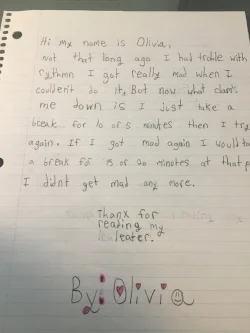 Hi my name is Olivia,
not that long ago I had troble with
rythmn I got really mad when I
couldn't do it. But now what clam's
me down is I just take a
break for 10 or 5 minutes then I try
again. If I got mad again I would ta
a break for 15 or 20 minutes at that p
I didnt get mad any more.
Thanx for
reading my
leater.
By: Olivia